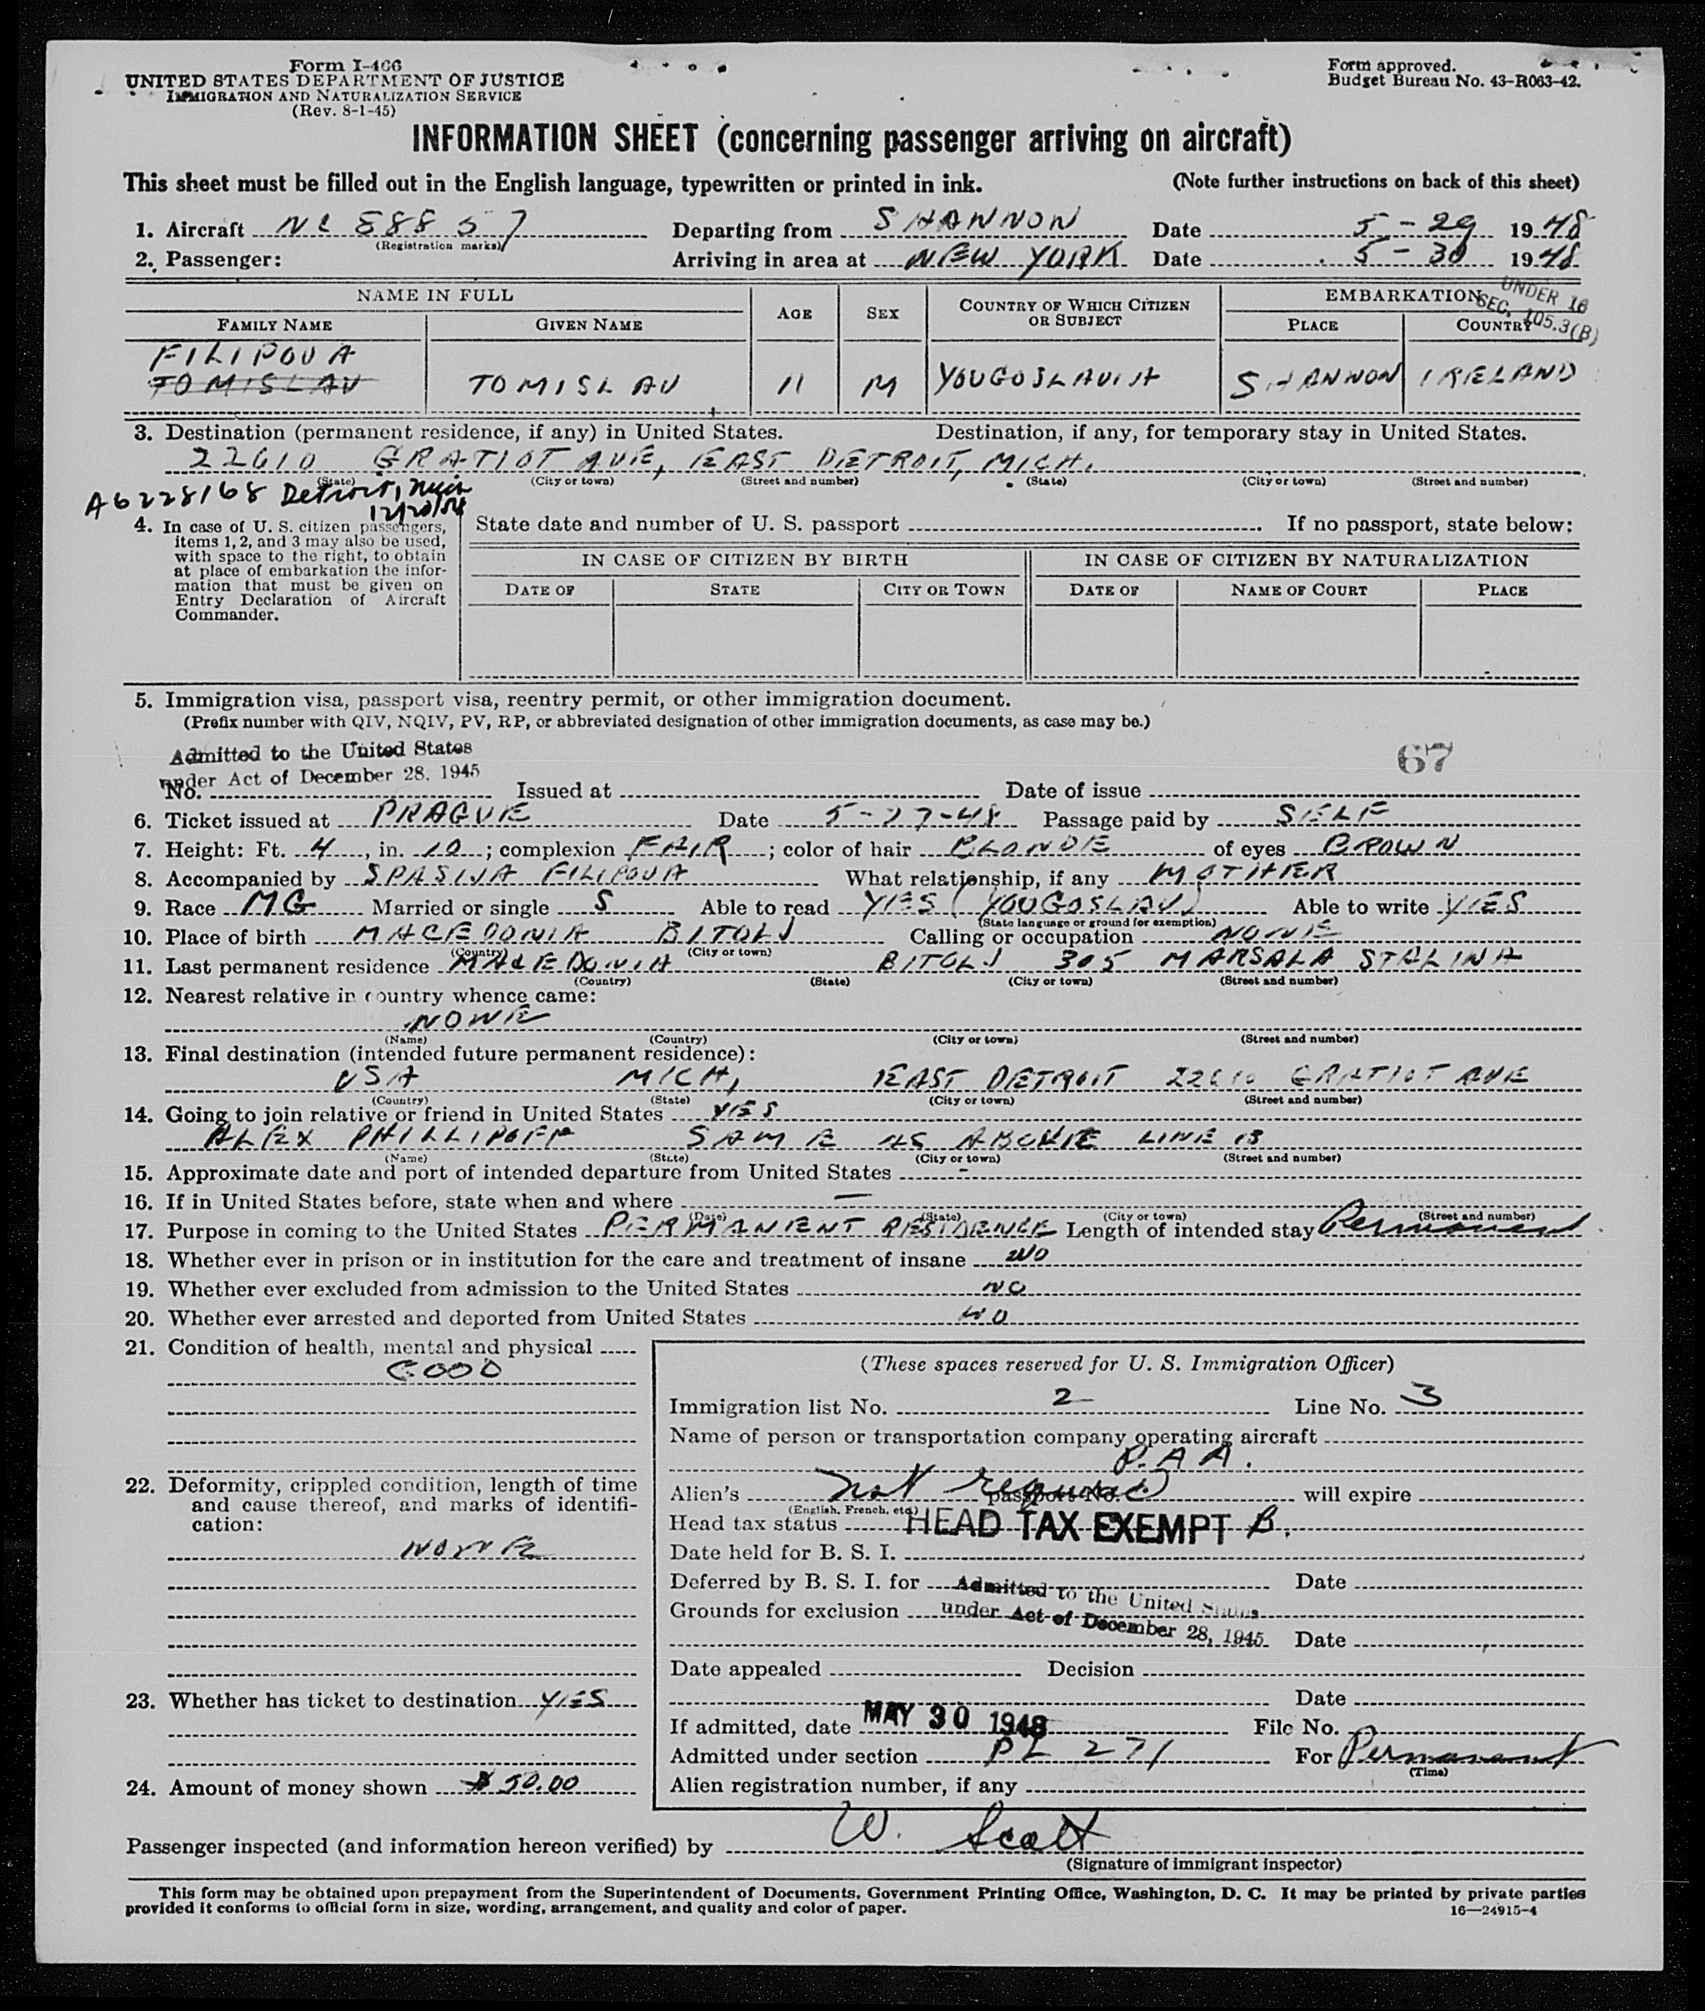 Form I-466
UNITED STATES DEPARTMENT OF JUSTICE
IMMIGRATION AND NATURALIZATION SERVICE
(Rev. 8-1-45)
Form approved.
Budget Bureau No. 43-R063-42.
INFORMATION SHEET (concerning passenger arriving on aircraft)
This sheet must be filled out in the English language, typewritten or printed in ink. (Note further instructions on back of this sheet)
1. Aircraft NC 88857 Departing from SHANNON Date 5-29 1948
(Registration marks)
2. Passenger: Arriving in area at NEW YORK Date 5-30 1948
UNDER 16
SEC. 105.3(B)
NAME IN FULL AGE SEX COUNTRY OF WHICH CITIZEN OR SUBJECT EMBARKATION
FAMILY NAME GIVEN NAME PLACE COUNTRY
FILIPOVA
TOMISLAV TOMISLAV 11 M YOUGOSLAVIA SHANNON IRELAND
3. Destination (permanent residence, if any) in United States. Destination, if any, for temporary stay in United States.
22610 GRATIOT AVE, EAST DETROIT, MICH.
(State) (City or town) (Street and number) (State) (City or town) (Street and number)
A6228168 Detroit, Mich
12/20/54
4. In case of U. S. citizen passengers, items 1, 2, and 3 may also be used, with space to the right, to obtain at place of embarkation the information that must be given on Entry Declaration of Aircraft Commander.
State date and number of U. S. passport If no passport, state below:
IN CASE OF CITIZEN BY BIRTH IN CASE OF CITIZEN BY NATURALIZATION
DATE OF STATE CITY OR TOWN DATE OF NAME OF COURT PLACE
5. Immigration visa, passport visa, reentry permit, or other immigration document.
(Prefix number with QIV, NQIV, PV, RP, or abbreviated designation of other immigration documents, as case may be.)
Admitted to the United States
under Act of December 28, 1945
67
No. Issued at Date of issue
6. Ticket issued at PRAGUE Date 5-27-48 Passage paid by SELF
7. Height: Ft. 4, in. 10; complexion FAIR; color of hair BLONDE of eyes BROWN
8. Accompanied by SPASIJA FILIPOVA What relationship, if any MOTHER
9. Race MG Married or single S Able to read YES (YOUGOSLAV) Able to write YES
(State language or ground for exemption)
10. Place of birth MACEDONIA BITOLJ Calling or occupation NONE
(Country) (City or town)
11. Last permanent residence MACEDONIA BITOLJ 305 MARSALA STALINA
(Country) (State) (City or town) (Street and number)
12. Nearest relative in country whence came:
NONE
(Name) (Country) (City or town) (Street and number)
13. Final destination (intended future permanent residence):
USA MICH, EAST DETROIT 22610 GRATIOT AVE
(Country) (State) (City or town) (Street and number)
14. Going to join relative or friend in United States YES
ALEX PHILLIPOFF SAME AS ABOVE LINE 13
(Name) (State) (City or town) (Street and number)
15. Approximate date and port of intended departure from United States -
16. If in United States before, state when and where —
(Date) (State) (City or town) (Street and number)
17. Purpose in coming to the United States PERMANENT RESIDENCE Length of intended stay Permanent
18. Whether ever in prison or in institution for the care and treatment of insane NO
19. Whether ever excluded from admission to the United States NO
20. Whether ever arrested and deported from United States NO
21. Condition of health, mental and physical
GOOD
22. Deformity, crippled condition, length of time and cause thereof, and marks of identification:
NONE
23. Whether has ticket to destination YES
24. Amount of money shown $50.00
(These spaces reserved for U. S. Immigration Officer)
Immigration list No. 2 Line No. 3
Name of person or transportation company operating aircraft
P.A.A.
Alien's not required passport No. will expire
(English, French, etc.)
Head tax status HEAD TAX EXEMPT B.
Date held for B. S. I.
Deferred by B. S. I. for Date
Admitted to the United States
under Act of December 28, 1945
Grounds for exclusion
Date
Date appealed Decision
Date
If admitted, date MAY 30 1948 File No.
Admitted under section PL 271 For Permanent
(Time)
Alien registration number, if any
Passenger inspected (and information hereon verified) by W. Scott
(Signature of immigrant inspector)
This form may be obtained upon prepayment from the Superintendent of Documents, Government Printing Office, Washington, D. C. It may be printed by private parties
provided it conforms to official form in size, wording, arrangement, and quality and color of paper.
16—24915-4